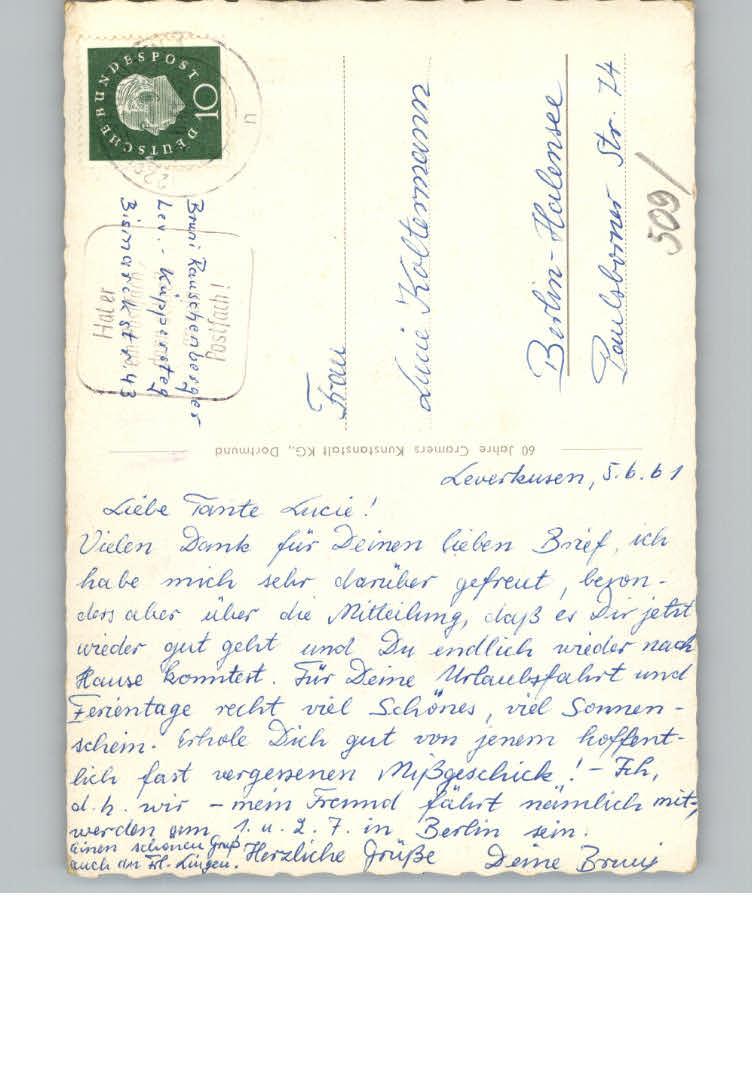 DEUTSCHE BUNDESPOST
10
Hat er
Postfach!
Bruni Rauschenberger
Lev.-Küppersteg
Bismarckstr. 43
Frau
Lucie Koltermann
Berlin-Halensee
Paulsborner Str. 74
509/
60 Jahre Cramers Kunstanstalt KG., Dortmund
Leverkusen, 5.6.61
Liebe Tante Lucie!
Vielen Dank für Deinen lieben Brief, ich
habe mich sehr darüber gefreut, beson-
ders aber über die Mitteilung, daß es Dir jetzt
wieder gut geht und Du endlich wieder nach
Hause konntest. Für Deine Urlaubsfahrt und
Ferientage recht viel Schönes, viel Sonnen-
schein. Erhole Dich gut von jenem hoffent-
lich fast vergessenen Mißgeschick! - Ich,
d.h. wir - mein Freund fährt nämlich mit,
werden am 1. u. 2. 7. in Berlin sein.
Einen schönen Gruß
auch an Frl. Lingen.
Herzliche Grüße Deine Bruni